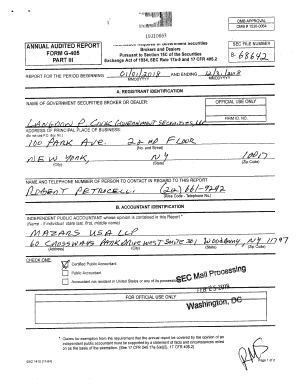 OMB APPROVAL
ANNUAL AUDITED REPORT
FORM G-405
PART III
Government Securities
Brokers and Dealers
Pursuant to Section 15C of the Securities
Exchange Act of 1934, SEC Rule 17a-5 and 17 CFR 405.2
SEC FILE NUMBER
8- 68642
REPORT FOR THE PERIOD BEGINNING 01/01/2018 AND ENDING 12/31/2018
MM/DD/YY MM/DD/YY
A. REGISTRANT IDENTIFICATION
NAME OF GOVERNMENT SECURITIES BROKER OR DEALER:
OFFICIAL USE ONLY
LANGDON P COOK GOVERNMENT SECURITIES, LLC
FIRM ID. NO.
ADDRESS OF PRINCIPAL PLACE OF BUSINESS:
(Do not use P.O. Box No.)
100 PARK AVE. 22ND FLOOR
(No. and Street)
NEW YORK, NY 10017
(City) (State) (Zip Code)
NAME AND TELEPHONE NUMBER OF PERSON TO CONTACT IN REGARD TO THIS REPORT
ROBERT PETRUCELLI (212) 661-9292
(Area Code - Telephone No.)
B. ACCOUNTANT IDENTIFICATION
INDEPENDENT PUBLIC ACCOUNTANT whose opinion is contained in this Report*
(Name - if individual state last, first, middle name)
MAZARS USA LLP
60 CROSSWAYS PARK DRIVE WEST SUITE 301 - Woodbury NY 11797
(Address) (City) (State) (Zip Code)
CHECK ONE:
Certified Public Accountant
Public Accountant
Accountant not resident in United States or any of its possessions
SEC Mail Processing
FOR OFFICIAL USE ONLY
Washington, DC
* Claims for exemption from the requirement that the annual report be covered by the opinion of an
independent public accountant must be supported by a statement of facts and circumstances relied
on as the basis of the exemption.
RMS
Page 1 of 2